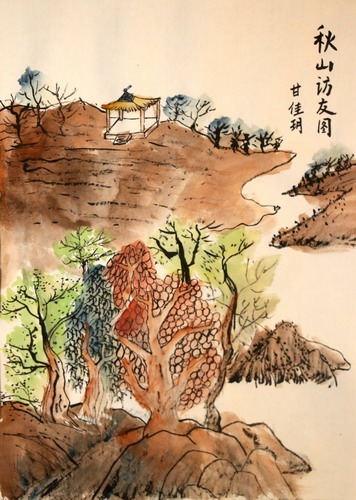 秋山访友图
甘佳玥